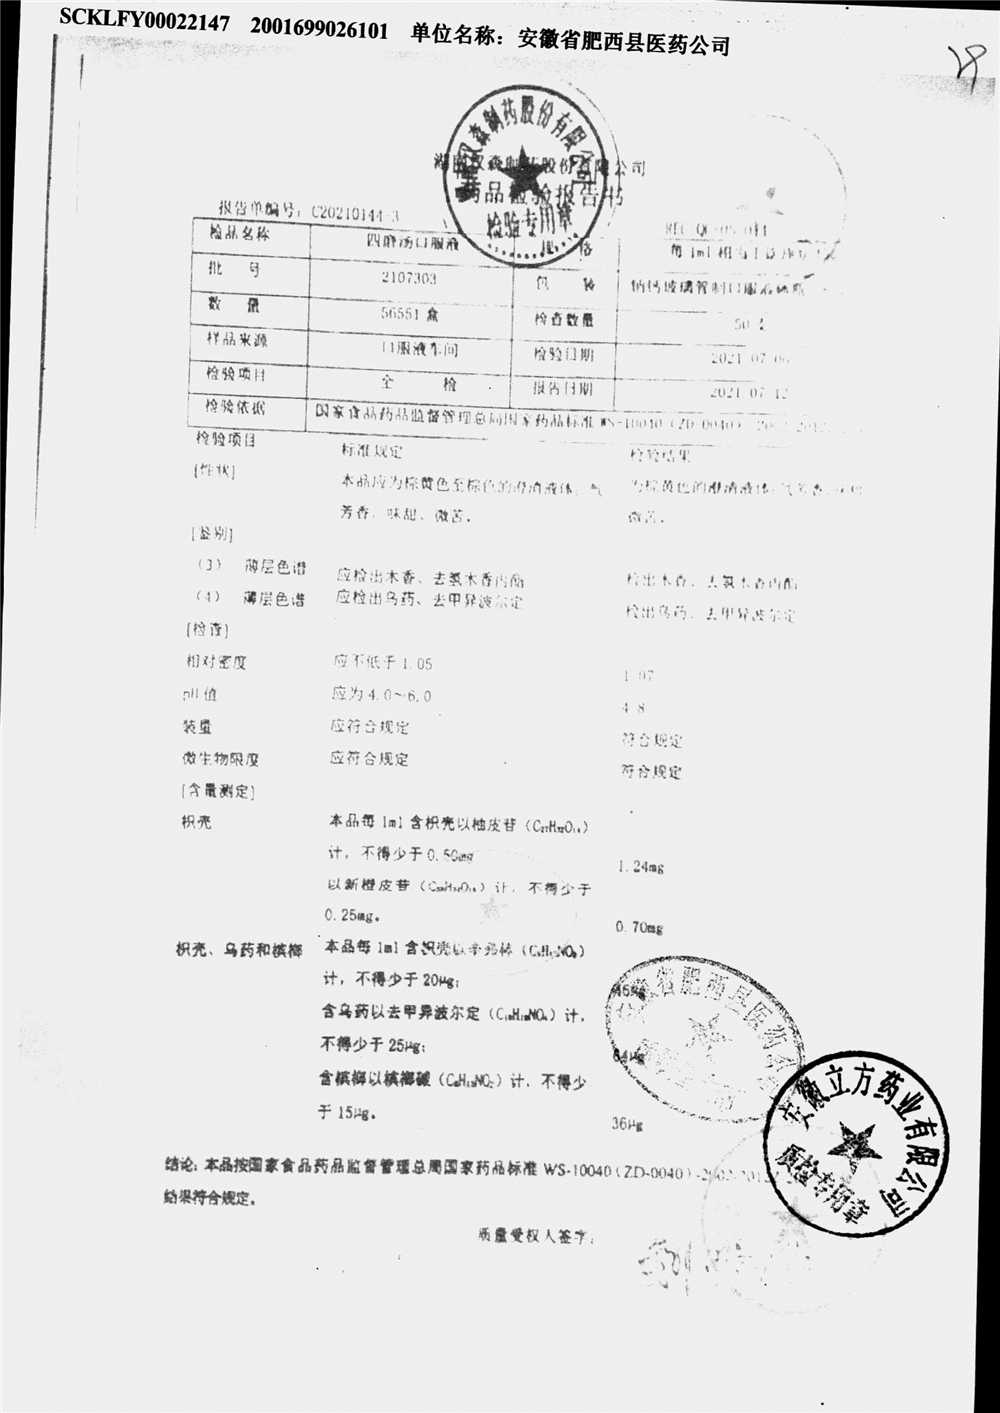 SCKLFY00022147 2001699026101 单位名称：安徽省肥西县医药公司
湖南汉森制药股份有限公司
药品检验报告书
报告单编号：C20210144-3
检品名称 四磨汤口服液 格
批 号 2107303 包
数 量 56551 盒 检查数量 50
样品来源 口服液车间 检验日期 2021-07-06
检验项目 全 检 报告日期 2021-07-12
检验依据 国家食品药品监督管理总局国家药品标准 WS-10040（ZD-0040）
检验项目 标准规定 检验结果
[性状] 本品应为棕黄色至棕色的澄清液体；气 为棕黄色的澄清液体
芳香，味甜、微苦。 微苦。
[鉴别]
（3） 薄层色谱 应检出木香、去氢木香内酯 检出木香、去氢木香内酯
（4） 薄层色谱 应检出乌药、去甲异波尔定 检出乌药、去甲异波尔定
[检查]
相对密度 应不低于 1.05 1.07
pH 值 应为 4.0～6.0 4.8
装量 应符合规定 符合规定
微生物限度 应符合规定 符合规定
[含量测定]
枳壳 本品每 1ml 含枳壳以柚皮苷
计，不得少于 0.50mg 1.24mg
以新橙皮苷 计，不得少于
0.25mg。 0.70mg
枳壳、乌药和槟榔 本品每 1ml 含枳壳以辛弗林
计，不得少于 20μg； 45μg
含乌药以去甲异波尔定 计，
不得少于 25μg； 64μg
含槟榔以槟榔碱 计，不得少
于 15μg。 36μg
结论：本品按国家食品药品监督管理总局国家药品标准 WS-10040（ZD-0040）
结果符合规定。
质量受权人签字：
检验专用章
安徽省肥西县医药公司
安徽立方药业有限公司
质检专用章